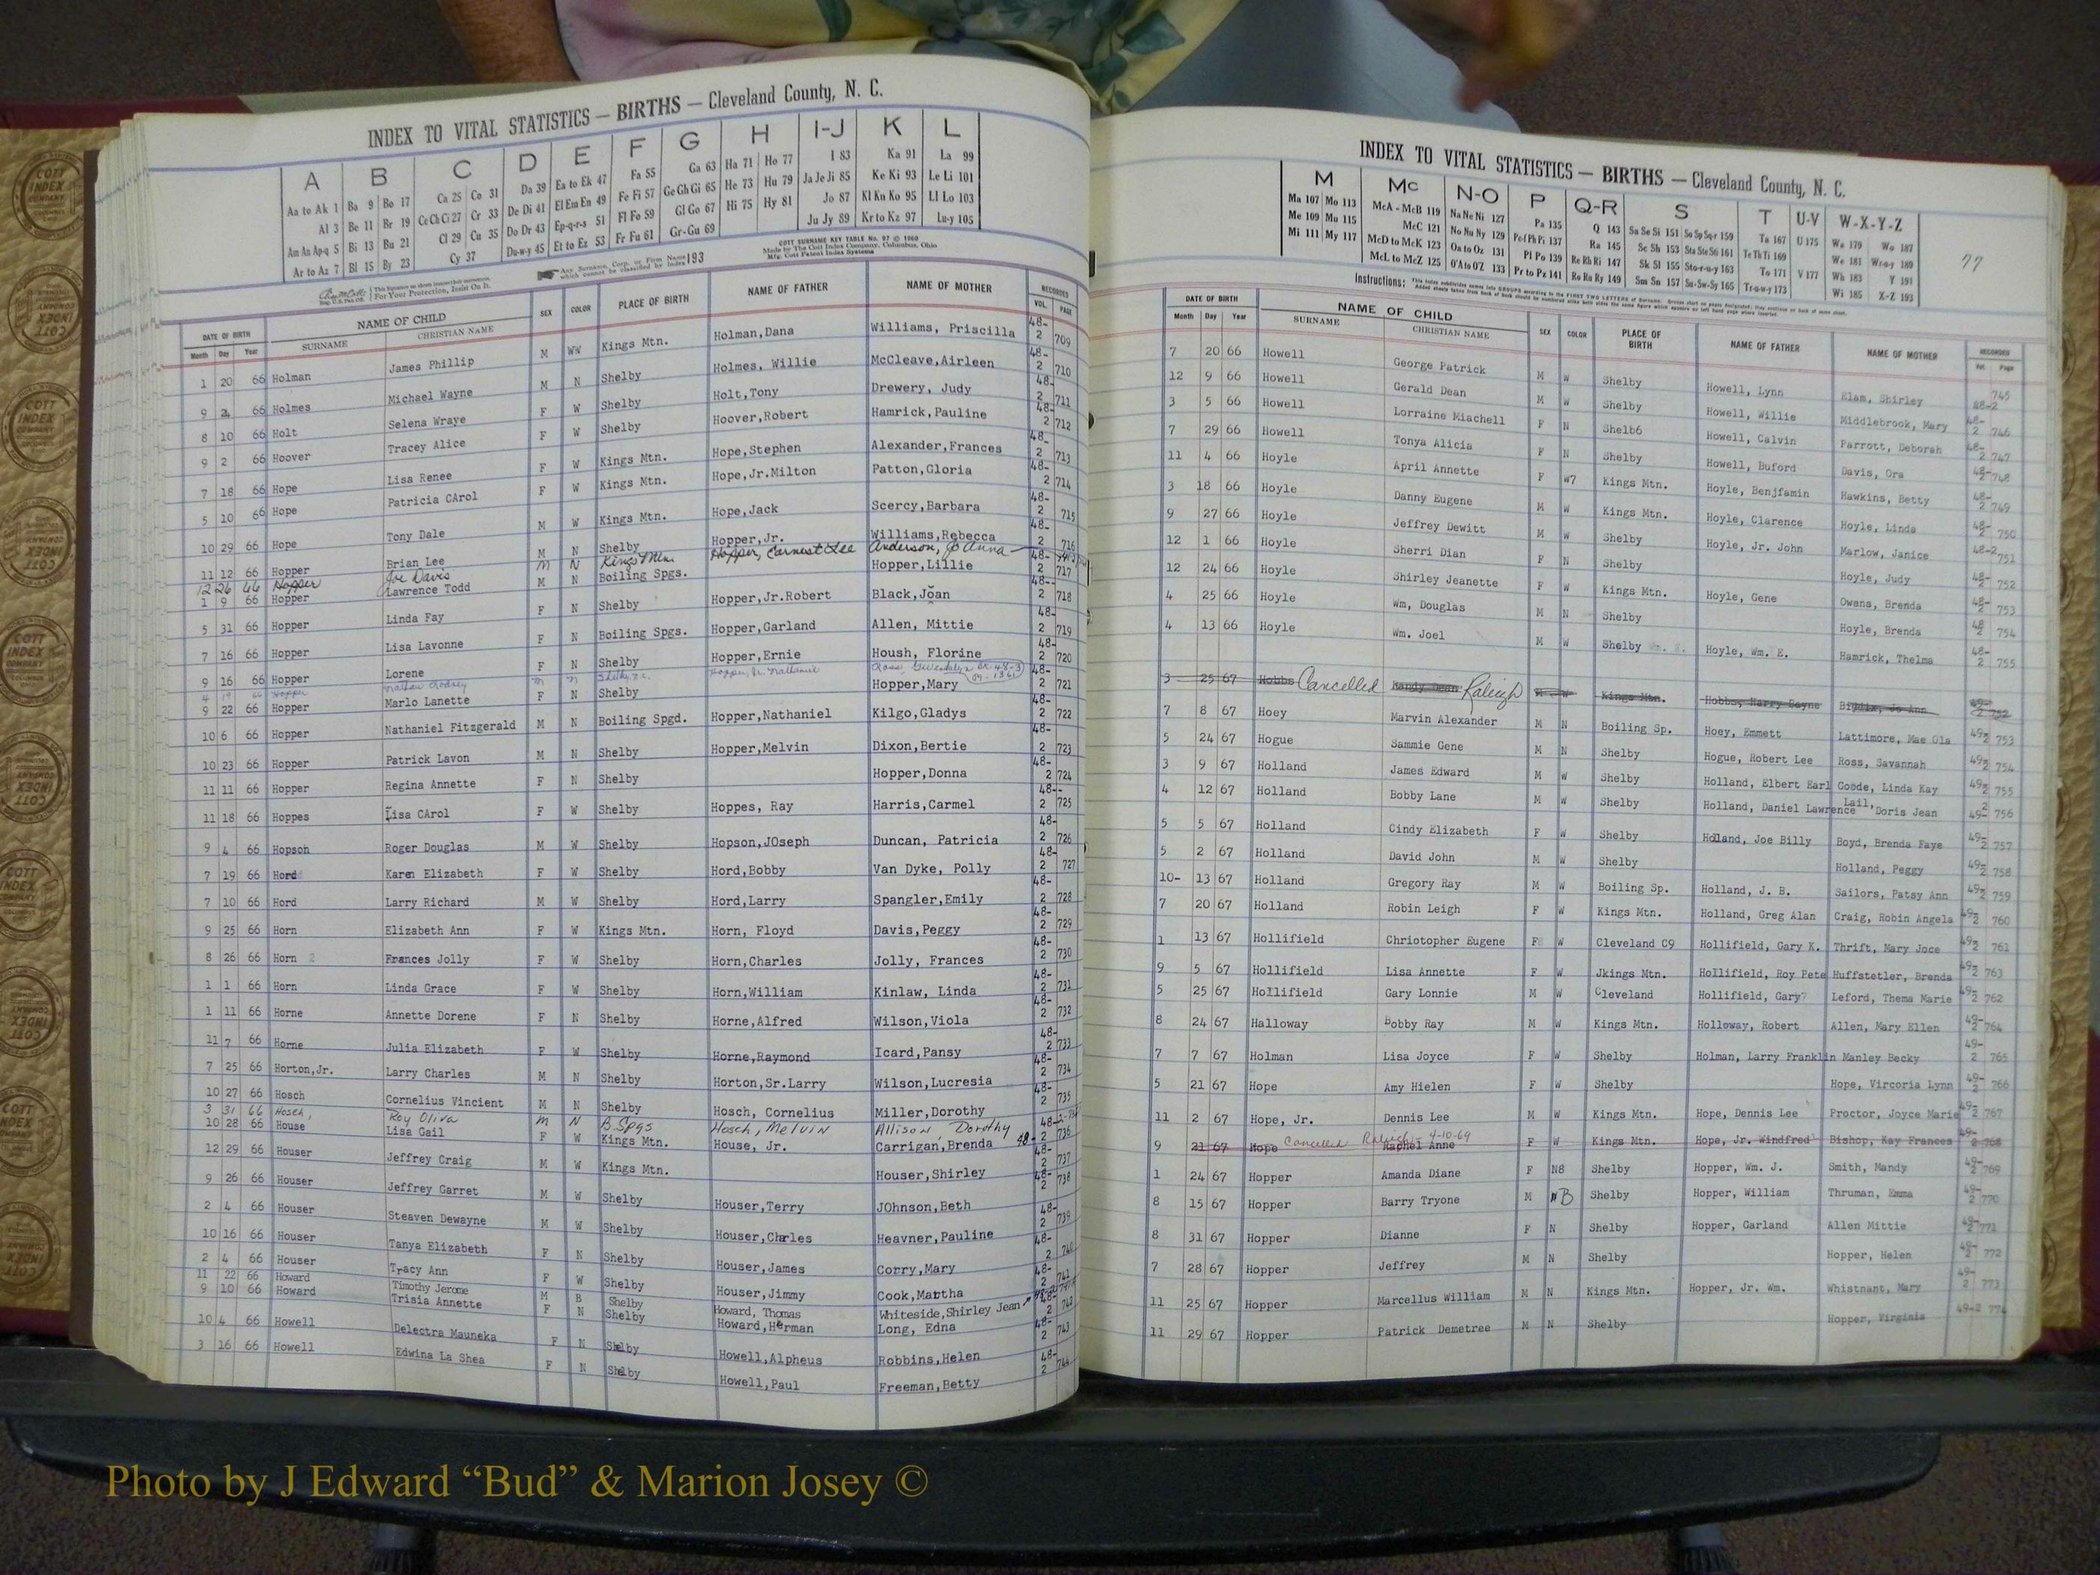 INDEX TO VITAL STATISTICS — BIRTHS — Cleveland County, N. C.
A B C D E F G H I-J K L
Aa to Ak 1 Ba 9 Bo 17 Ca 25 Co 31 Da 39 Ea to Ek 47 Fa 55 Ga 63 Ha 71 Ho 77 I 83 Ka 91 La 99
Al 3 Be 11 Br 19 Ce Ch Ci 27 Cr 33 De Di 41 El Em En 49 Fe Fi 57 Ge Gh Gi 65 He 73 Hu 79 Ja Je Ji 85 Ke Ki 93 Le Li 101
Am An Ap-q 5 Bi 13 Bu 21 Cl 29 Cu 35 Do Dr 43 Ep-q-r-s 51 Fl Fo 59 Gl Go 67 Hi 75 Hy 81 Jo 87 Kl Kn Ko 95 Ll Lo 103
Ar to Az 7 Bl 15 By 23 Cy 37 Du-w-y 45 Et to Ez 53 Fr Fu 61 Gr-Gu 69 Ju Jy 89 Kr to Kz 97 Lu-y 105
COTT SURNAME KEY TABLE No. 97 © 1960
Made by The Cott Index Company, Columbus, Ohio
Mfg. Cott Patent Index Systems
Any Surname, Corp. or Firm Name which cannot be classified by Index 193
For Your Protection, Insist On It.
DATE OF BIRTH NAME OF CHILD SEX COLOR PLACE OF BIRTH NAME OF FATHER NAME OF MOTHER RECORDED
Month Day Year SURNAME CHRISTIAN NAME VOL. PAGE
1 20 66 Holman James Phillip M WW Kings Mtn. Holman,Dana Williams, Priscilla 48-2 709
9 2 66 Holmes Michael Wayne M N Shelby Holmes, Willie McCleave,Airleen 48-2 710
8 10 66 Holt Selena Wraye F W Shelby Holt,Tony Drewery, Judy 48-2 711
9 2 66 Hoover Tracey Alice F W Shelby Hoover,Robert Hamrick,Pauline 48-2 712
7 18 66 Hope Lisa Renee F W Kings Mtn. Hope,Stephen Alexander,Frances 48-2 713
5 10 66 Hope Patricia CArol F W Kings Mtn. Hope,Jr.Milton Patton,Gloria 48-2 714
10 29 66 Hope Tony Dale M W Kings Mtn. Hope,Jack Scercy,Barbara 48-2 715
11 12 66 Hopper Brian Lee M N Shelby Hopper,Jr. Williams,Rebecca 48-2 716
12 26 66 Hopper Joe Davis M N Kings Mtn. Hopper, Earnest Lee Anderson, Jo Anna
1 9 66 Hopper Lawrence Todd M N Boiling Spgs. Hopper,Lillie 48-2 717
5 31 66 Hopper Linda Fay F N Shelby Hopper,Jr.Robert Black,Joan 48-2 718
7 16 66 Hopper Lisa Lavonne F N Boiling Spgs. Hopper,Garland Allen, Mittie 48-2 719
9 16 66 Hopper Lorene F N Shelby Hopper,Ernie Housh, Florine 48-2 720
4 19 66 Hopper Nathan Rodney M N Shelby, N.C. Hopper, Jr. Nathaniel Ross, Gwendolyn BK 48-3 Pg. 1361
9 22 66 Hopper Marlo Lanette F N Shelby Hopper,Mary 48-2 721
10 6 66 Hopper Nathaniel Fitzgerald M N Boiling Spgd. Hopper,Nathaniel Kilgo,Gladys 48-2 722
10 23 66 Hopper Patrick Lavon M N Shelby Hopper,Melvin Dixon,Bertie 48-2 723
11 11 66 Hopper Regina Annette F N Shelby Hopper,Donna 48-2 724
11 18 66 Hoppes Lisa CArol F W Shelby Hoppes, Ray Harris,Carmel 48-2 725
9 4 66 Hopson Roger Douglas M W Shelby Hopson,JOseph Duncan, Patricia 48-2 726
7 19 66 Hord Karen Elizabeth F W Shelby Hord,Bobby Van Dyke, Polly 48-2 727
7 10 66 Hord Larry Richard M W Shelby Hord,Larry Spangler,Emily 48-2 728
9 25 66 Horn Elizabeth Ann F W Kings Mtn. Horn, Floyd Davis,Peggy 48-2 729
8 26 66 Horn Frances Jolly F W Shelby Horn,Charles Jolly, Frances 48-2 730
1 1 66 Horn Linda Grace F W Shelby Horn,William Kinlaw, Linda 48-2 731
1 11 66 Horne Annette Dorene F N Shelby Horne,Alfred Wilson,Viola 48-2 732
11 7 66 Horne Julia Elizabeth F W Shelby Horne,Raymond Icard,Pansy 48-2 733
7 25 66 Horton,Jr. Larry Charles M N Shelby Horton,Sr.Larry Wilson,Lucresia 48-2 734
10 27 66 Hosch Cornelius Vincient M N Shelby Hosch, Cornelius Miller,Dorothy 48-2 735
3 31 66 Hosch, Roy Oliva M N B.Spgs Hosch, Melvin Allison, Dorothy 48-2
10 28 66 House Lisa Gail F W Kings Mtn. House, Jr. Carrigan,Brenda 48-2 736
12 29 66 Houser Jeffrey Craig M W Kings Mtn. Houser,Shirley 48-2 737
9 26 66 Houser Jeffrey Garret M W Shelby Houser,Terry JOhnson,Beth 48-2 738
2 4 66 Houser Steaven Dewayne M W Shelby Houser,Charles Heavner,Pauline 48-2 739
10 16 66 Houser Tanya Elizabeth F N Shelby Houser,James Corry,Mary 48-2 740
2 4 66 Houser Tracy Ann F W Shelby Houser,Jimmy Cook,Martha 48-2 741
11 22 66 Howard Timothy Jerome M B Shelby Howard, Thomas Whiteside,Shirley Jean
9 10 66 Howard Trisia Annette F N Shelby Howard,Herman Long, Edna 48-2 742
10 4 66 Howell Delectra Mauneka F N Shelby Howell,Alpheus Robbins,Helen 48-2 743
3 16 66 Howell Edwina La Shea F N Shelby Howell,Paul Freeman,Betty 48-2 744
INDEX TO VITAL STATISTICS — BIRTHS — Cleveland County, N. C.
M Mc N-O P Q-R S T U-V W-X-Y-Z
Ma 107 Mo 113 McA - McB 119 Na Ne Ni 127 Pa 135 Q 143 Sa Se Si 151 So Sp Sq-r 159 Ta 167 U 175 Wa 179 Wo 187
Me 109 Mu 115 McC 121 No Nu Ny 129 Pe-f Ph Pi 137 Ra 145 Sc Sh 153 Sta Ste Sti 161 Te Th Ti 169 We 181 Wr-u-y 189
Mi 111 My 117 McD to McK 123 Oa to Oz 131 Pl Po 139 Re Rh Ri 147 Sk Sl 155 Sto-r-u-y 163 To 171 V 177 Wh 183 Y 191
McL to McZ 125 O'A to O'Z 133 Pr to Pz 141 Ro Ru Ry 149 Sm Sn 157 Su-Sw-Sy 165 Tr-u-w-y 173 Wi 185 X-Z 193
77
Instructions:
DATE OF BIRTH NAME OF CHILD SEX COLOR PLACE OF BIRTH NAME OF FATHER NAME OF MOTHER RECORDED
Month Day Year SURNAME CHRISTIAN NAME Vol. Page
7 20 66 Howell George Patrick M W Shelby Howell, Lynn Elam, Shirley 48-2 745
12 9 66 Howell Gerald Dean M W Shelby Howell, Willie Middlebrook, Mary 48-2 746
3 5 66 Howell Lorraine Miachell F N Shelb6 Howell, Calvin Parrott, Deborah 48-2 747
7 29 66 Howell Tonya Alicia F N Shelby Howell, Buford Davis, Ora 48-2 748
11 4 66 Hoyle April Annette F W7 Kings Mtn. Hoyle, Benjfamin Hawkins, Betty 48-2 749
3 18 66 Hoyle Danny Eugene M W Kings Mtn. Hoyle, Clarence Hoyle, Linda 48-2 750
9 27 66 Hoyle Jeffrey Dewitt M W Shelby Hoyle, Jr. John Marlow, Janice 48-2 751
12 1 66 Hoyle Sherri Dian F N Shelby Hoyle, Judy 48-2 752
12 24 66 Hoyle Shirley Jeanette F W Kings Mtn. Hoyle, Gene Owens, Brenda 48-2 753
4 25 66 Hoyle Wm, Douglas M N Shelby Hoyle, Brenda 48-2 754
4 13 66 Hoyle Wm. Joel M W Shelby Hoyle, Wm. E. Hamrick, Thelma 48-2 755
3 25 67 Hobbs Cancelled Randy Dean Raleigh M W Kings Mtn. Hobbs, Harry Jo Ann 49-2 752
7 8 67 Hoey Marvin Alexander M N Boiling Sp. Hoey, Emmett Lattimore, Mae Ola 49-2 753
5 24 67 Hogue Sammie Gene M N Shelby Hogue, Robert Lee Ross, Savannah 49-2 754
3 9 67 Holland James Edward M W Shelby Holland, Elbert Earl Goode, Linda Kay 49-2 755
4 12 67 Holland Bobby Lane M W Shelby Holland, Daniel Lawrence Lail, Doris Jean 49-2 756
5 5 67 Holland Cindy Elizabeth F W Shelby Holland, Joe Billy Boyd, Brenda Faye 49-2 757
5 2 67 Holland David John M W Shelby Holland, Peggy 49-2 758
10- 13 67 Holland Gregory Ray M W Boiling Sp. Holland, J. B. Sailors, Patsy Ann 49-2 759
7 20 67 Holland Robin Leigh F W Kings Mtn. Holland, Greg Alan Craig, Robin Angela 49-2 760
1 13 67 Hollifield Chriotopher Eugene F W Cleveland C9 Hollifield, Gary K. Thrift, Mary Joce 49-2 761
9 5 67 Hollifield Lisa Annette F W Jkings Mtn. Hollifield, Roy Pete Huffstetler, Brenda 49-2 763
5 25 67 Hollifield Gary Lonnie M W Cleveland Hollifield, Gary? Leford, Thema Marie 49-2 762
8 24 67 Halloway Bobby Ray M W Kings Mtn. Holloway, Robert Allen, Mary Ellen 49-2 764
7 7 67 Holman Lisa Joyce F W Shelby Holman, Larry Franklin Manley Becky 49-2 765
5 21 67 Hope Amy Hielen F W Shelby Hope, Vircoria Lynn 49-2 766
11 2 67 Hope, Jr. Dennis Lee M W Kings Mtn. Hope, Dennis Lee Proctor, Joyce Marie 49-2 767
9 21 67 Hope Cancelled Raleigh - 4-10-69 Rachel Anne F W Kings Mtn. Hope, Jr. Windfred Bishop, Kay Frances 49-2 768
1 24 67 Hopper Amanda Diane F N8 Shelby Hopper, Wm. J. Smith, Mandy 49-2 769
8 15 67 Hopper Barry Tryone M B Shelby Hopper, William Thruman, Emma 49-2 770
8 31 67 Hopper Dianne F N Shelby Hopper, Garland Allen Mittie 49-2 771
7 28 67 Hopper Jeffrey M N Shelby Hopper, Helen 49-2 772
11 25 67 Hopper Marcellus William M N Kings Mtn. Hopper, Jr. Wm. Whistnant, Mary 49-2 773
11 29 67 Hopper Patrick Demetree M N Shelby Hopper, Virginia 49-2 774
Photo by J Edward “Bud” & Marion Josey ©
COTT INDEX COMPANY